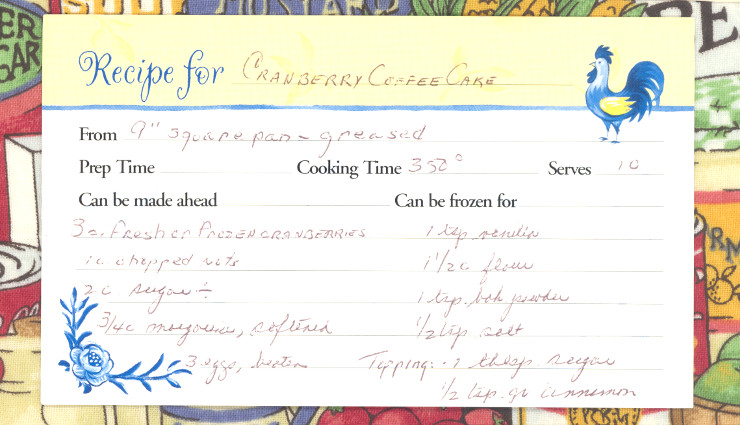 ER
GAR
PE
RM
Recipe for CRANBERRY COFFEE CAKE
From 9" square pan - greased
Prep Time Cooking Time 350° Serves 10
Can be made ahead Can be frozen for
3 c. Fresh or FROZEN CRANBERRIES
1 c chopped nuts
2 c. sugar ÷
3/4 c margarine, softened
3 eggs, beaten
1 tsp vanilla
1 1/2 c flour
1 tsp. bak powder
1/2 tsp salt
Topping: 1 tblsp sugar
1/2 tsp. gr cinnamon